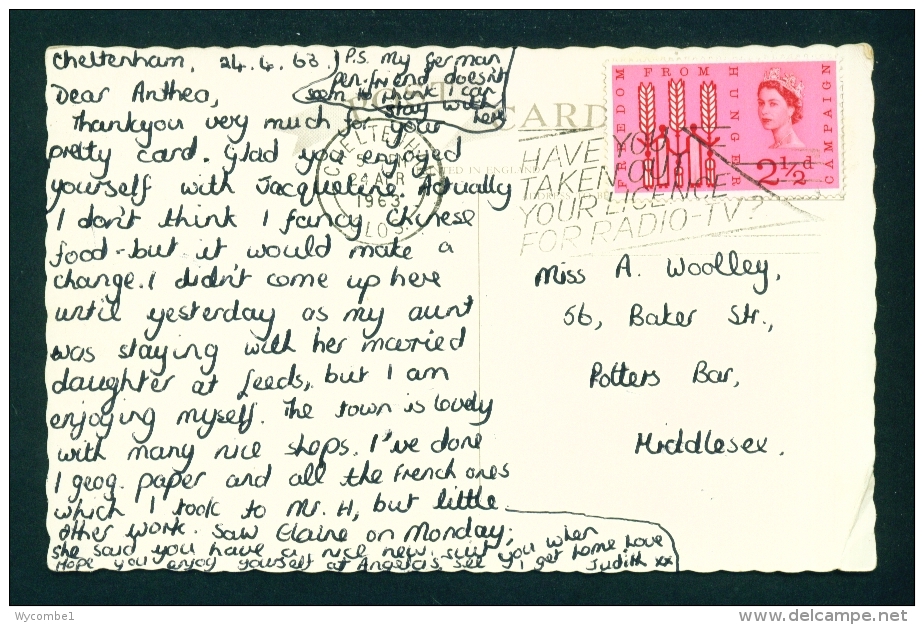 Cheltenham, 24.4.63.
P.S. my German
pen-friend doesn't
seem to think I can
stay with
here
Dear Anthea,
Thankyou very much for your
pretty card. Glad you enjoyed
yourself with Jacqueline. Actually
I don't think I fancy Chinese
food - but it would make a
change. I didn't come up here
until yesterday as my aunt
was staying with her married
daughter at Leeds, but I am
enjoying myself. The town is lovely
with many nice shops. I've done
1 geog. paper and all the French ones
which I took to Mr. H, but little
other work. Saw Elaine on Monday;
she said you have a nice new suit
Hope you enjoy yourself at Angela's, see you when
I get home love
Judith xx
POST CARD
PRINTED IN ENGLAND
CHELTENHAM
24 APR
1963
GLOS.
HAVE YOU
TAKEN OUT
YOUR LICENCE
FOR RADIO-TV?
FREEDOM FROM HUNGER CAMPAIGN
2½d
Miss A. Woolley,
56, Baker Str.,
Potters Bar,
Middlesex.
Wycombe1
www.delcampe.net